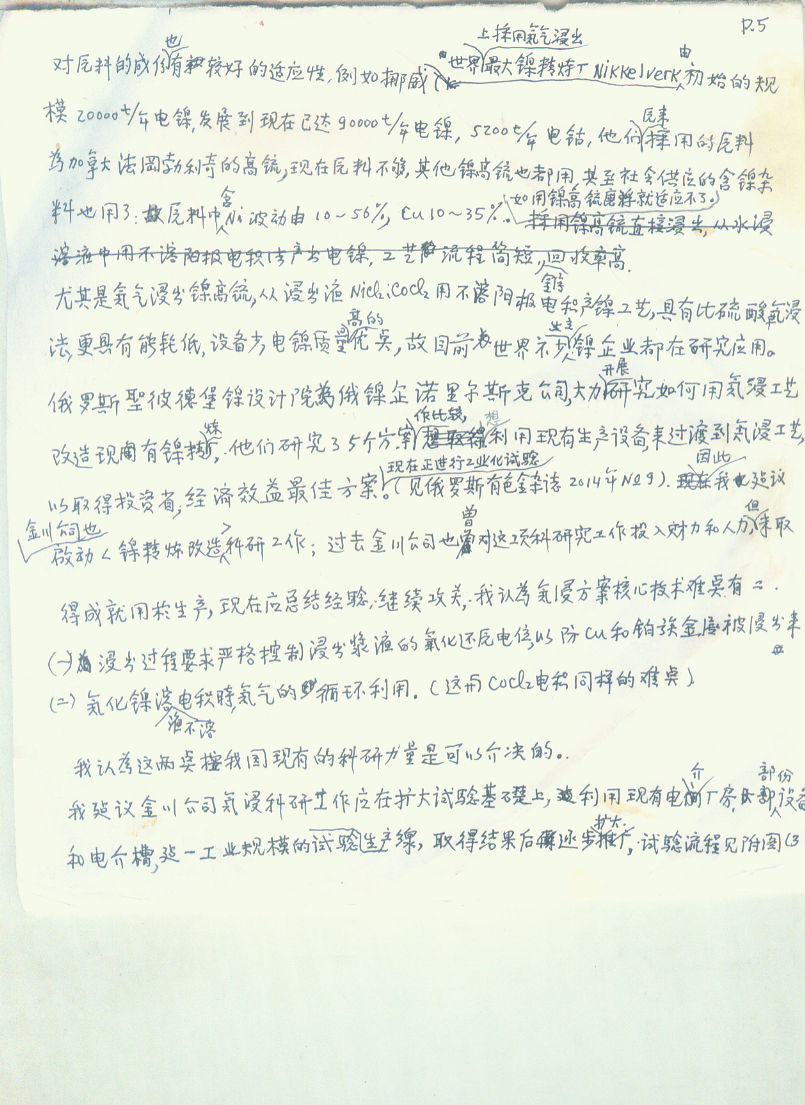 P.5
上採用氯气浸出
对厡料的成份也有較好的适应性,例如挪威(世界最大镍精炼厂Nikkelverk,由初始的规
模20000t/年电镍,发展到现在已达90000t/年电镍,5200t/年电钴,他们厡来採用的厡料
為加拿大法岡勃利奇的高锍,现在厡料不够,其他镍高锍也都用,甚至社会供应的含镍杂
如用镍高锍磨辉就适应不了。
料也用了:厡料中含Ni波动由10~56%,Cu10~35%。採用镍高锍直接浸出,从水浸
溶液中用不溶阳极电积生产出电镍,工艺流程简短,回收率高.
尤其是氯气浸出镍高锍,从浸出液NiCl2,CoCl2用不溶阳极电积产镍工艺,具有比硫酸氧浸
法,更具有能耗低,设备少电镍质量高的优点,故目前世界不少镍企业都在研究应用。
俄罗斯聖彼德堡镍设计院為俄镍企诺里尔斯克公司,大力开展研究如何用氯浸工艺
改造现有镍精炼,他们研究了5个方案作比较,想利用现有生产设备来过渡到氯浸工艺,
现在正进行工业化试验
以取得投资省,经济效益最佳方案。(见俄罗斯有色金杂誌2014年№9).因此我建议
金川公司也
啟动<镍精炼改造>科研工作;过去金川公司也曾对这项科研究工作投入财力和人力,但未取
得成就用於生产,现在应总结经验,继续攻关,我认為氯浸方案核心技术难点有二.
(一)浸出过程要求严格控制浸出浆液的氧化还厡电位,以防Cu和铂族金属被浸出来
(二)氯化镍溶液不溶电积時,氯气的循环利用.(这和CoCl2电积同样的难点)
我认為这两点按我国现有的科研力量是可以介决的。
我建议金川公司氯浸科研工作应在扩大试验基础上,利用现有电介厂房,部份设备
和电介槽,建一工业规模的试验生产線,取得结果后逐步扩大推广,试验流程见附图(3